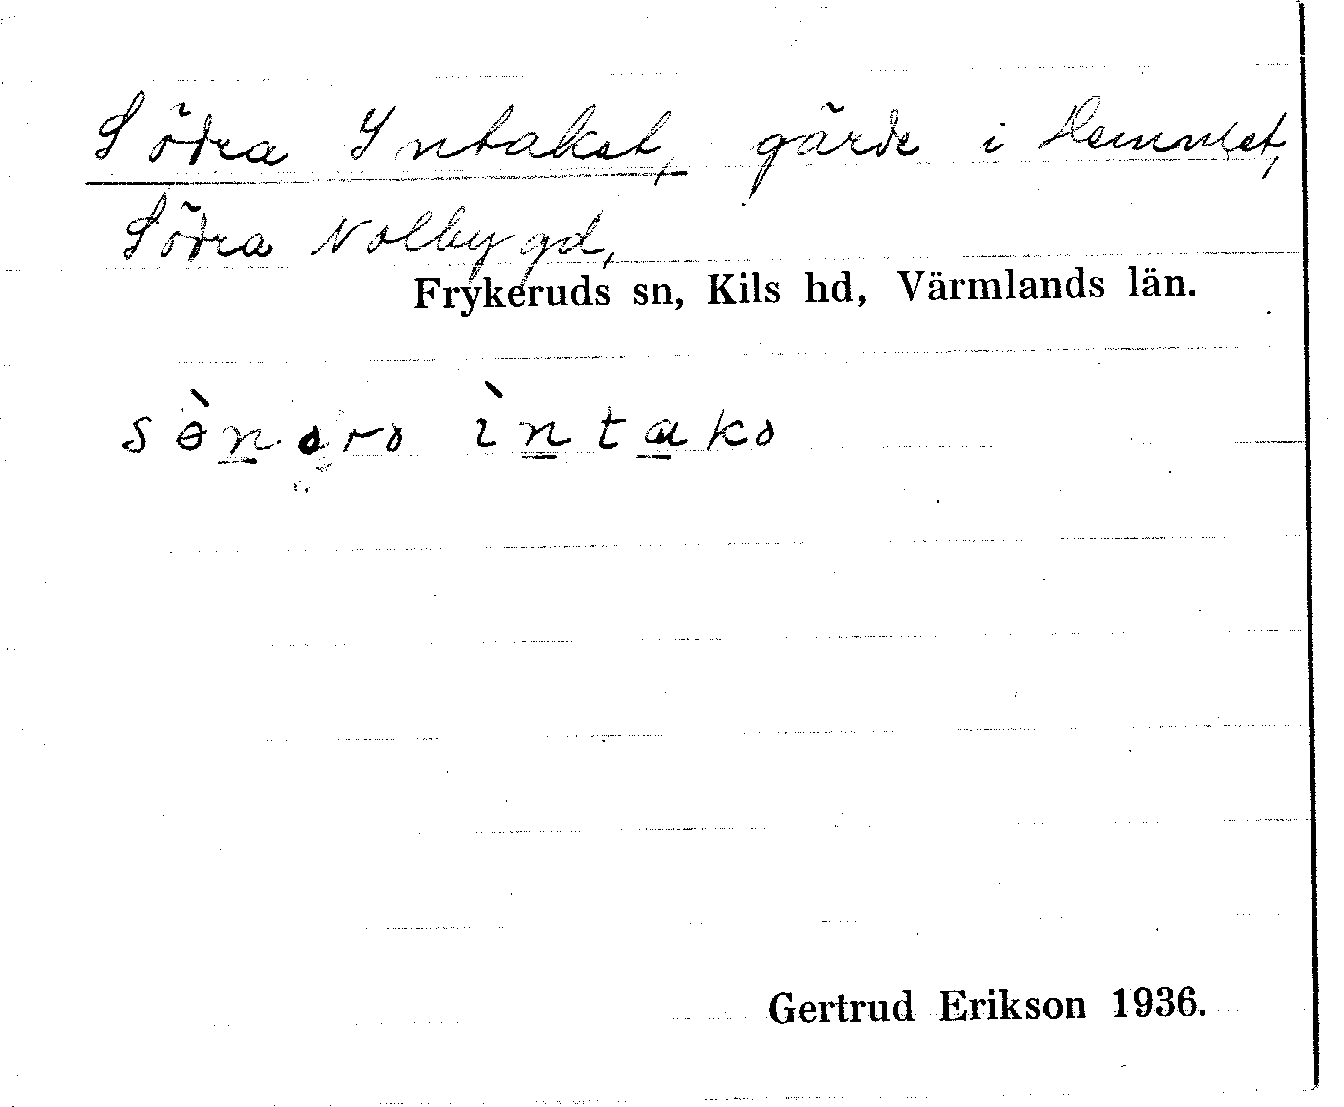 Södra Intaket, gärde i Hemmet,
Södra Nolby gd,
Frykeruds sn, Kils hd, Värmlands län.
sɵ̀nərə ìntakə
Gertrud Erikson 1936.